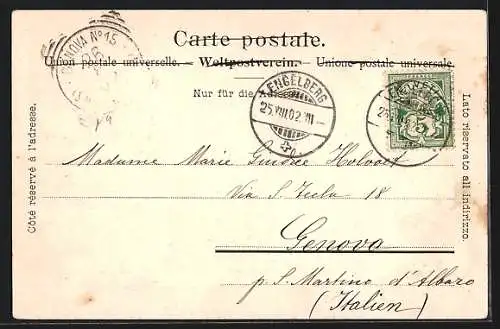 Carte postale.
Union postale universelle. — Weltpostverein. — Unione postale universale.
Nur für die Adresse.
GENOVA Nº 15
ENGELBERG
25.VIII.02.VII
ENGELBERG
5
Côté réservé à l'adresse.
Lato riservato all indirizzo.
Madame Marie Holvoet
Via S. 18
Genova
p. S. Martino d'Albaro
(Italien)